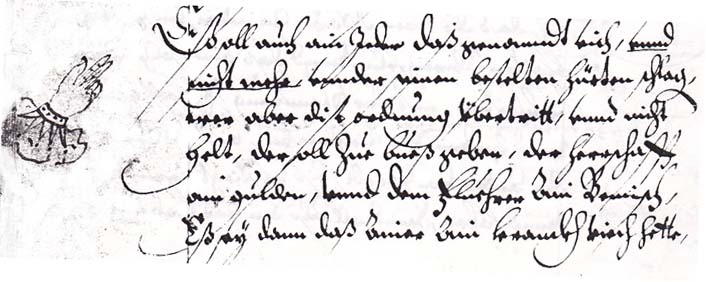 Eß soll auch ain Jeder daß genanndt vich, vnnd
nicht mehr vnnder seinen bestelten hürten schlag,
wer aber dise ordnung Übertritt, vnnd nicht
helt, der soll Zue bueß geben, der herrschafft
ain gulden, vnnd dem Fluehrer ain
Eß sey dann daß ainer ain vich hette,